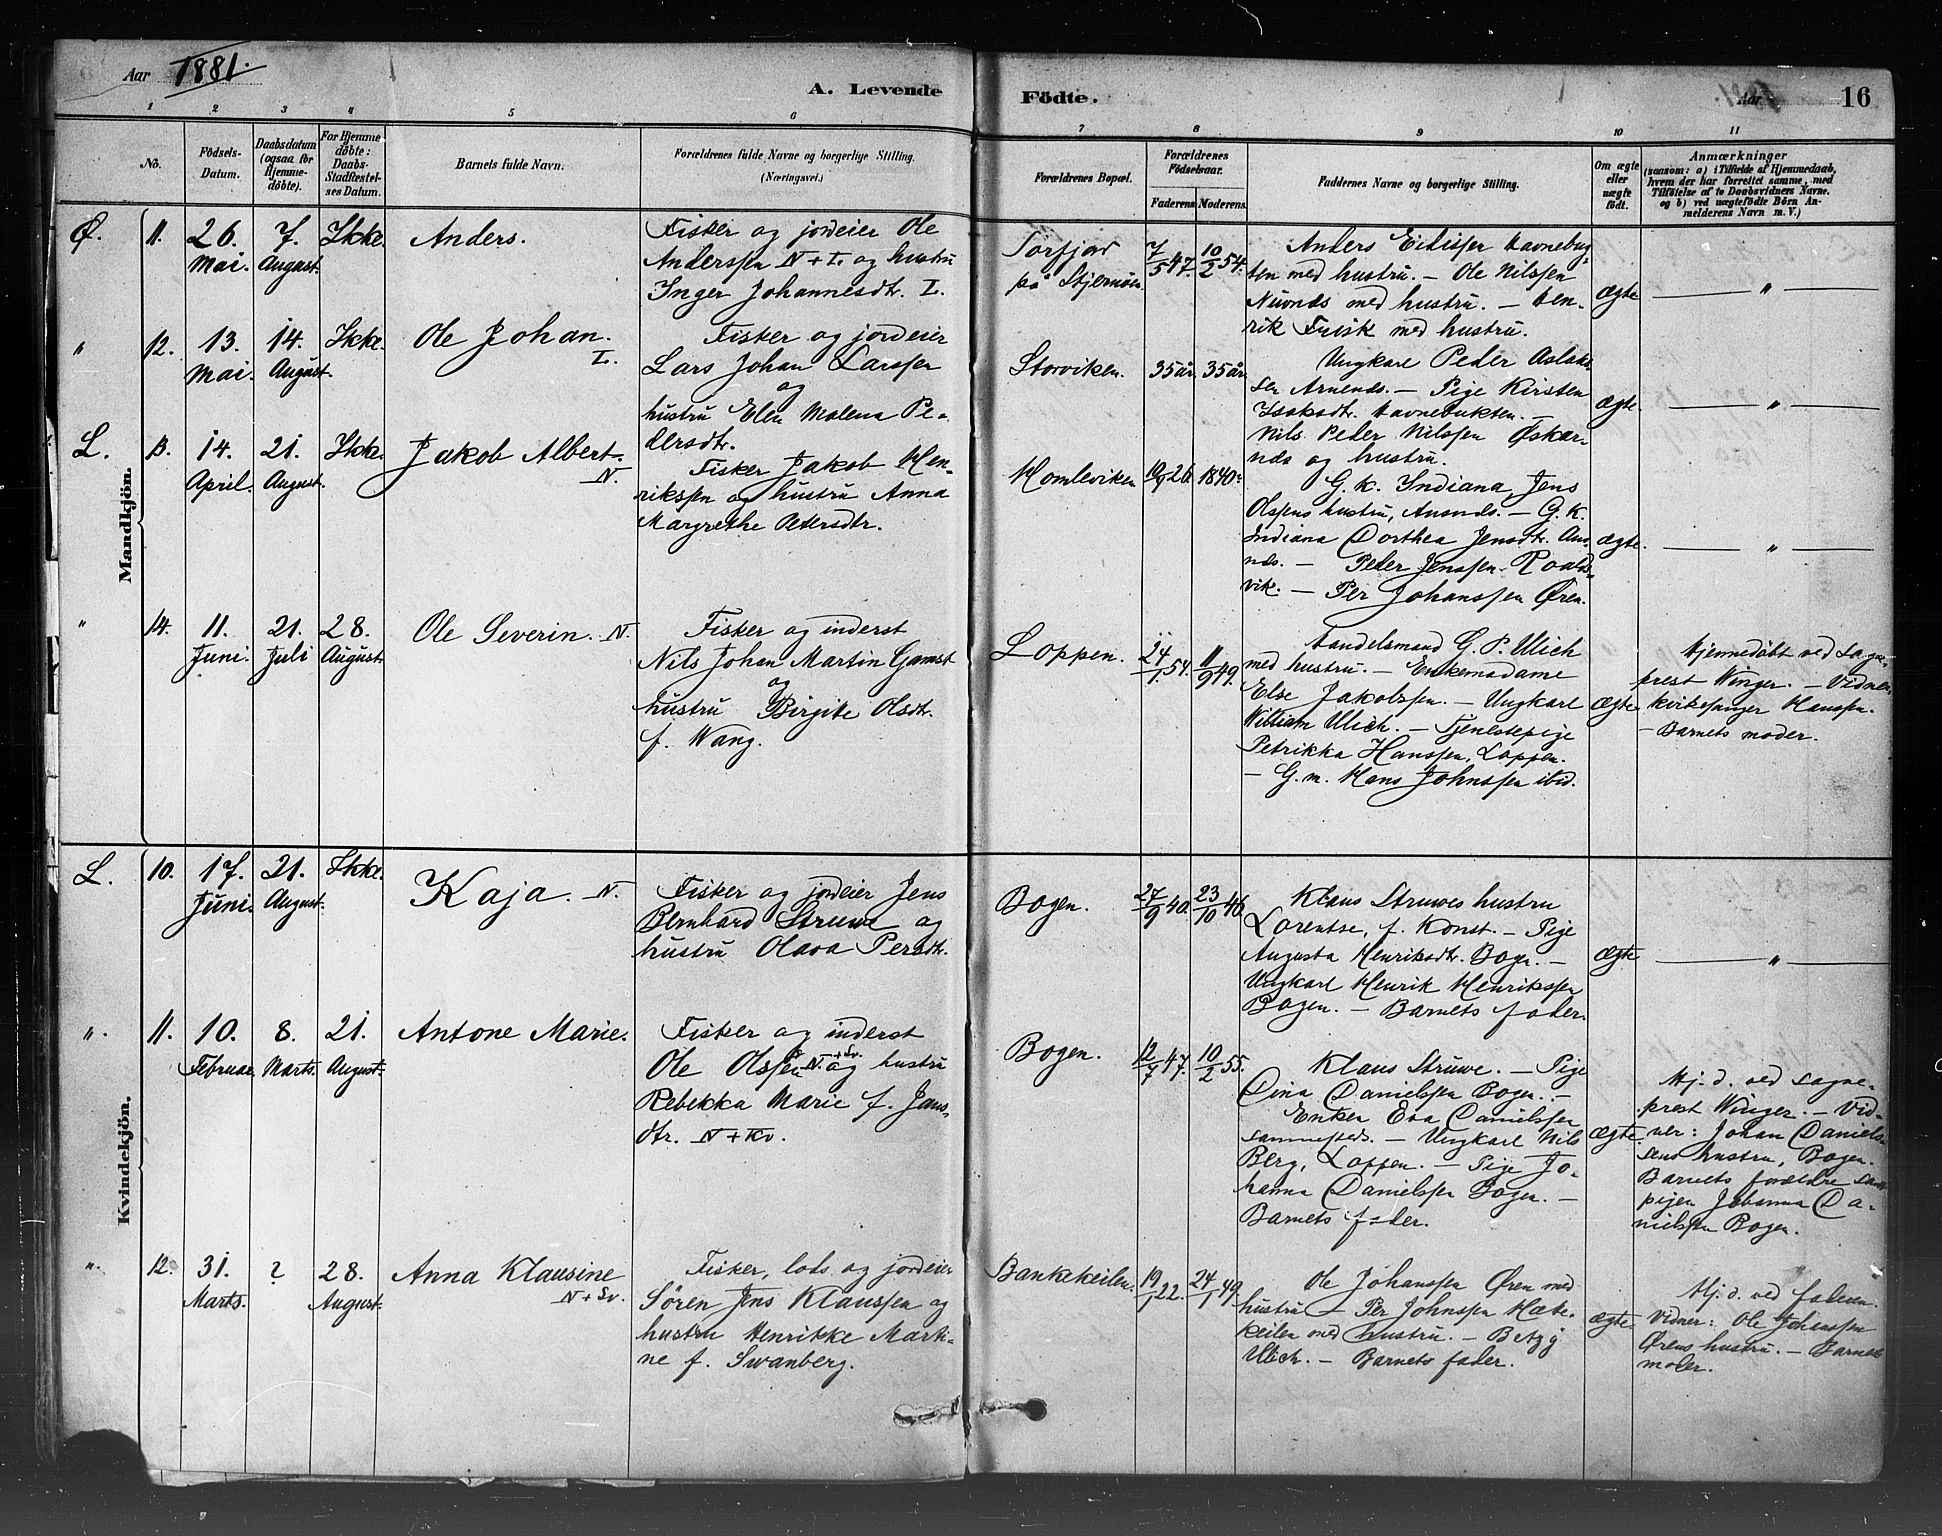 Aar 1881.
A. Levende Födte.
Aar
16
1 2 3 4 5 6 7 8 9 10 11
No.
Födsels-
Datum.
Daabsdatum
(ogsaa for
Hjemme-
döbte).
For Hjemme-
döbte:
Daabs-
Stadfæstel-
ses Datum.
Barnets fulde Navn.
Forældrenes fulde Navne og borgerlige Stilling.
(Næringsvei.)
Forældrenes Bopæl.
Forældrenes
Födselsaar.
Faderens. Moderens.
Faddernes Navne og borgerlige Stilling.
Om ægte
eller
uægte
födt.
Anmærkninger
(saasom: a) i Tilfælde af Hjemmedaab,
hvem der har forrettet samme, med
Tilföielse af to Daabsvidners Navne.
og b) ved uægtefödte Börn An-
melderens Navn m. V.)
Mandkjön.
Ø. 11. 26. Mai. 7. August. Ikke.
Anders.
Fisker og jordeier Ole
Anderssen N + L. og hustru
Inger Johannesdtr. L.
Sørfjor
på Stjernøen.
7/5 47. 10/2 54.
Anders Eidissen Havnebug-
ten med hustru. — Ole Nilssen
Nuvnæs med hustru. — Hen-
rik Frisk med hustru.
ægte
— " —
" 12. 13. Mai. 14. August. Ikke.
Ole Johan.
L.
Fisker og jordeier
Lars Johan Larssen
og
hustru Elen Malena Pe-
dersdtr.
Storviken.
35 år. 35 år.
Ungkarl Peder Aslak-
sen Arnenæs. — Pige Kirsten
Isaksdtr. Havnebukten. —
Nils Peder Nilssen Øskar-
næs og hustru.
ægte.
— " —
L. 13. 14. April. 21. August. Ikke.
Jakob Albert.
N.
Fisker Jakob Hen-
rikssen og hustru Anna
Margrethe Petersdtr.
Homleviken
19/9 26. 1840.
G. k. Indiana, Jens
Olssens hustru, Ausnæs. — G. k.
Indiana Dorthea Jensdtr. Aus-
næs. — Peder Jenssen Roalds-
vik. — Per Johanssen Øren.
ægte.
— " —
" 14. 11. Juni. 21. Juli 28. August.
Ole Severin. N.
Fisker og inderst
Nils Johan Martin Gamst
og
hustru Birgite Olsdtr.
f. Wang.
Loppen.
24/1 54. 11/9 49.
Handelsmand G. P. Ulich
med hustru. — Enkemadame
Else Jakobssen. — Ungkarl
William Ulich. — Tjenestepige
Petrikka Hanssen, Loppen.
— G. m. Hans Johnssen ibid.
ægte
Hjemmedøbt ved sogne-
prest Winger. — Vidner
kirkesanger Hanssen.
— Barnets moder.
Kvindekjön.
L. 10. 17. Juni. 21. August. Ikke.
Kaja. N.
Fisker og jordeier Jens
Bernhard Struwe og
hustru Olava Persdtr.
Bogen.
27/9 40. 23/10 46.
Klaus Struwes hustru
Lorentse, f. Konst. — Pige
Augusta Henriksdtr. Bogen. —
Ungkarl Henrik Henrikssen
Bogen. — Barnets fader.
ægte
— " —
" 11. 10. Februar. 8. Marts. 21. August.
Antone Marie.
Fisker og inderst
Ole Olssen N. + Sv. og hustru
Rebekka Marie f. Jans-
dtr. N + Kv.
Bogen.
12/7 47. 10/2 55.
Klaus Struwe. — Pige
Dina Danielssen Bogen. —
Enken Eva Danielssen
sammesteds. — Ungkarl Nils
Berg, Loppen. — Pige Jo-
hanna Danielssen Bogen. —
Barnets fader.
ægte.
Hj. d. ved sogne-
prest Winger. — Vid-
ner: Johan Daniels-
sens hustru, Bogen.
Barnets forældre samt
pigen Johanna Da-
nielssen Bogen.
" 12. 31. Marts. ? 28. August.
Anna Klausine
N + Sv.
Fisker, lods og jordeier
Søren Jens Klaussen og
hustru Henrikke Marti-
ne f. Swanberg.
Bankekeilen.
19/1 22. 24/1 49.
Ole Johanssen Øren med
hustru — Per Johnssen Hæke-
keilen med hustru. — Betzy
Ulich. — Barnets fader.
ægte.
Hj. d. ved faderen.
Vidner: Ole Johanssen
Ørens hustru. — Barnets
moder.